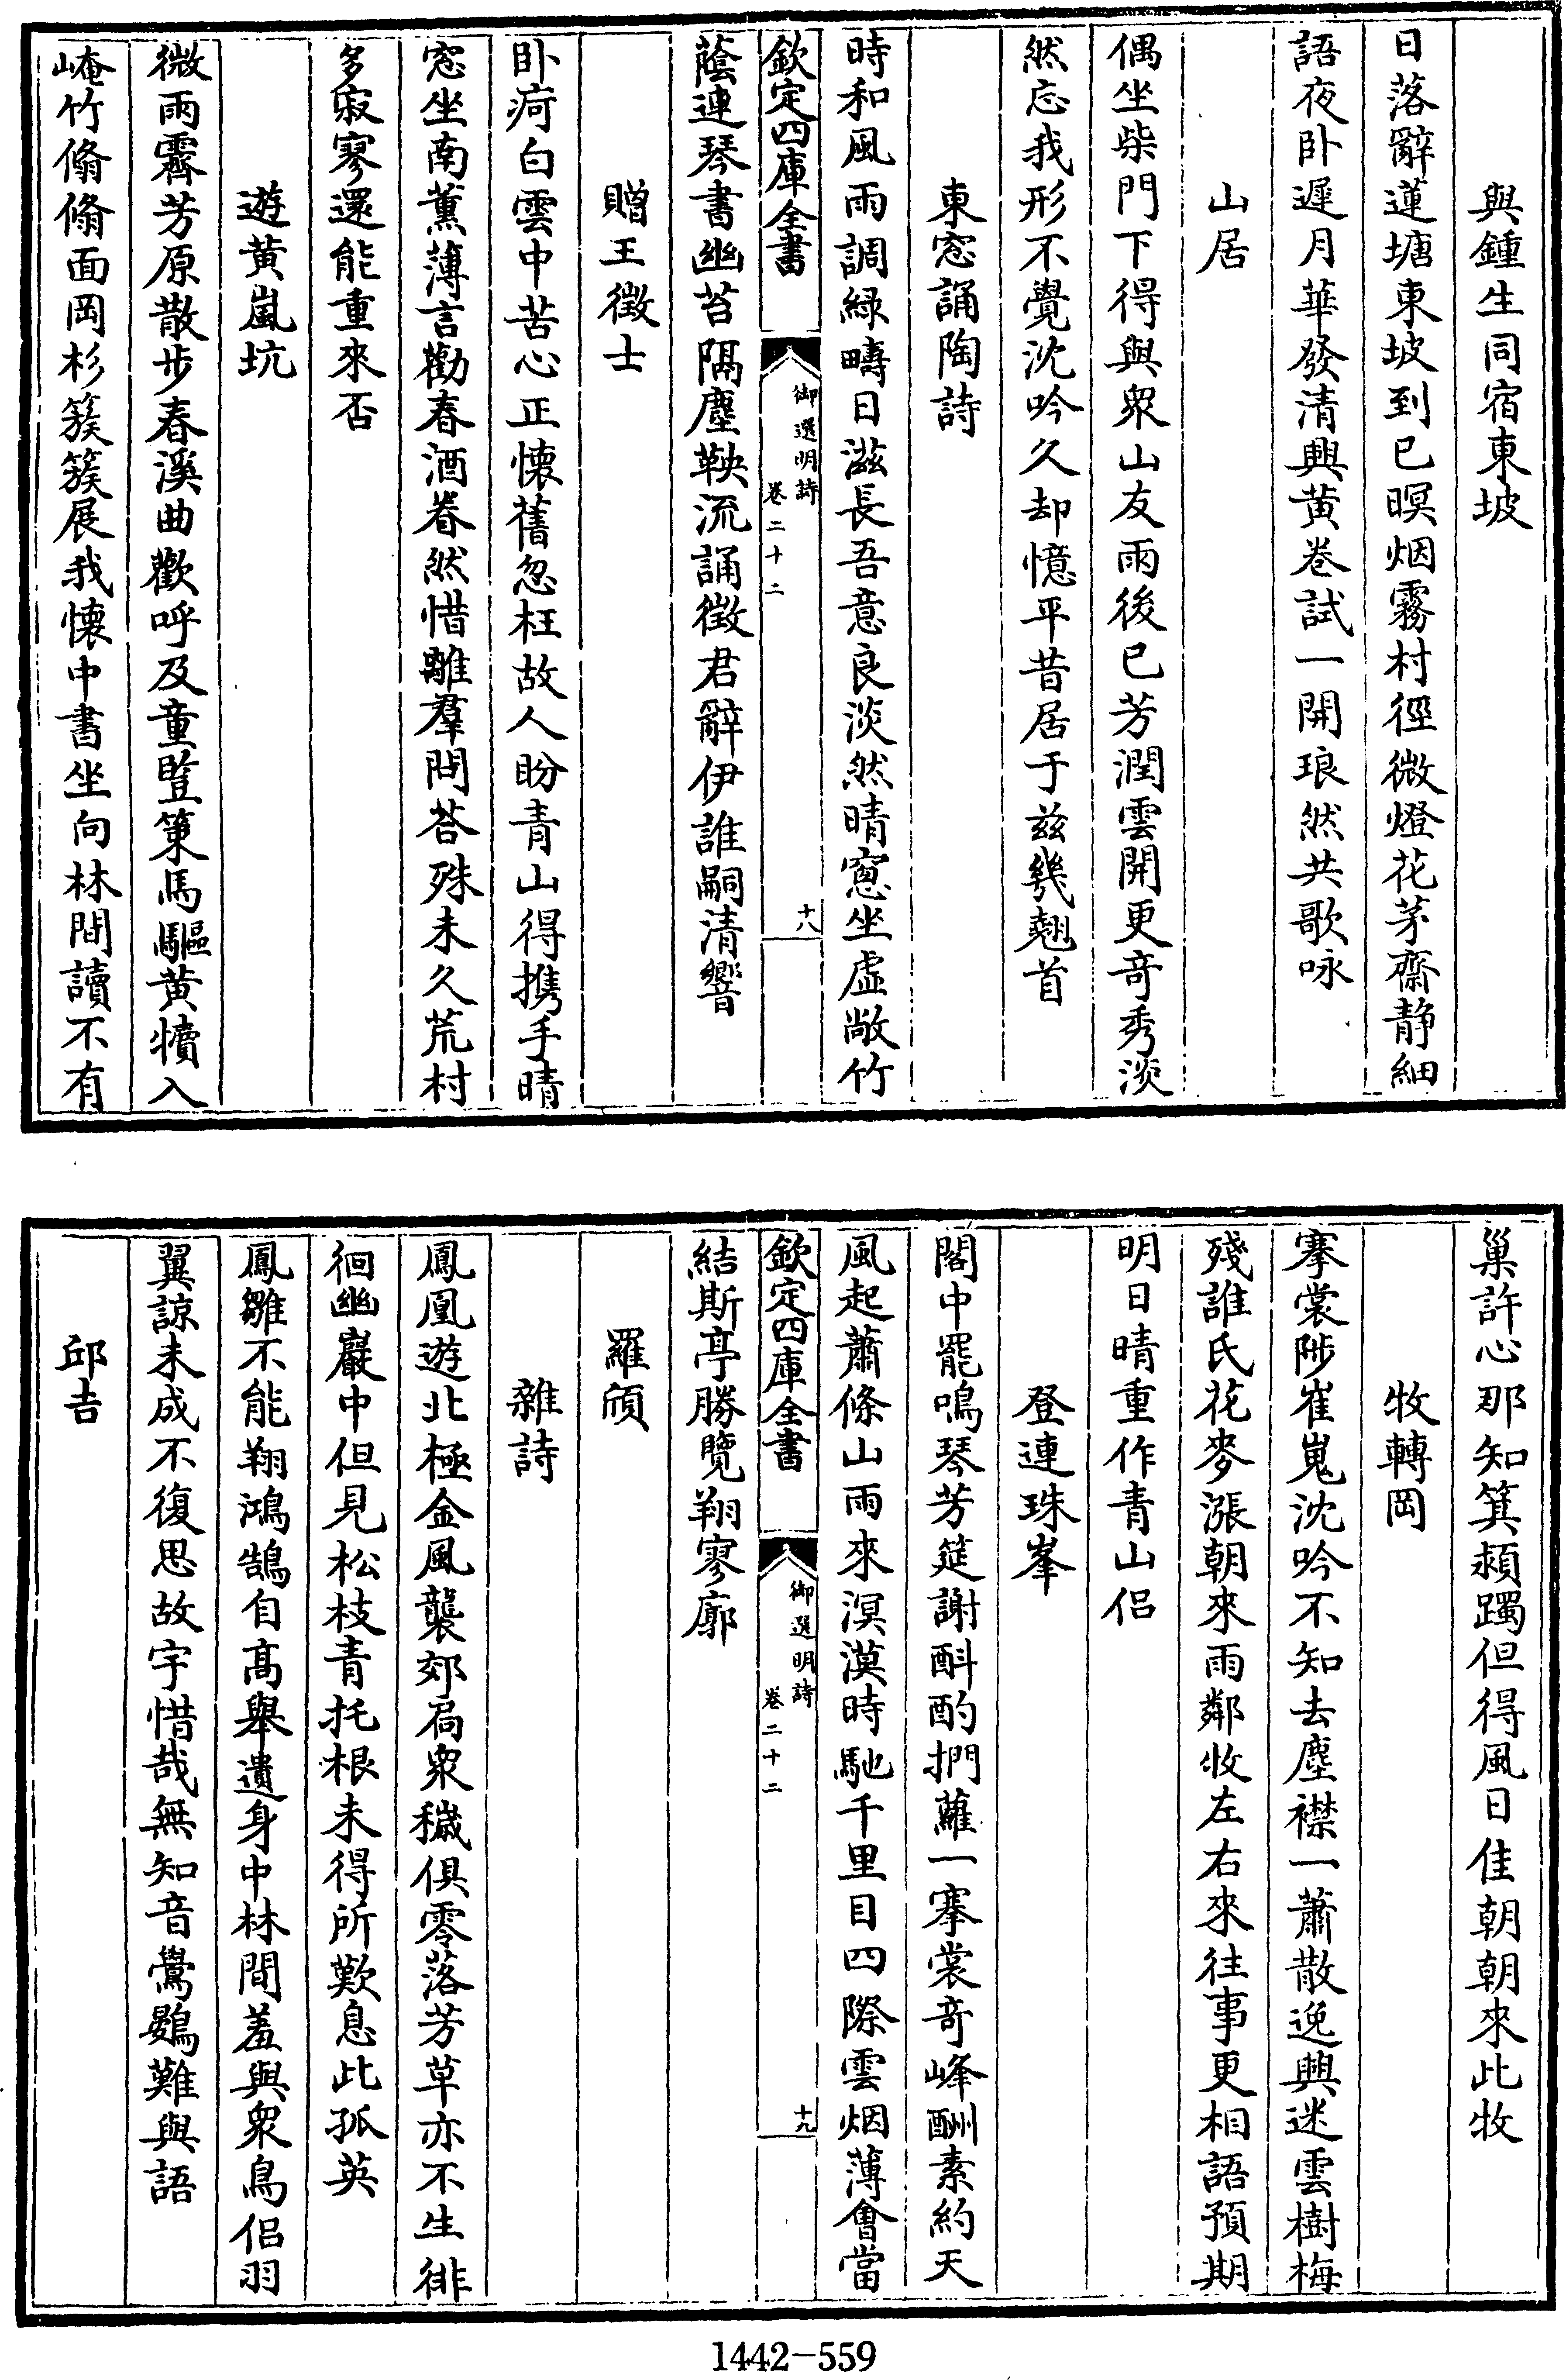 與鍾生同宿東坡
日落辭蓮塘東坡到已暝烟霧村徑微燈花茅齋静細
語夜卧遲月華發清興黄卷試一開琅然共歌咏
山居
偶坐柴門下得與衆山友雨後已芳潤雲開更竒秀淡
然忘我形不覺沈吟久却憶平昔居于兹幾翹首
東窓誦陶詩
時和風雨調緑疇日滋長吾意良淡然晴窓坐虛敞竹
欽定四庫全書
御選明詩
卷二十二
十八
蔭連琴書幽苔隔塵鞅流誦徴君辭伊誰嗣清響
贈王徴士
卧疴白雲中苦心正懐舊忽枉故人盼青山得携手晴
窓坐南薫薄言勸春酒眷然惜離羣問荅殊未久荒村
多寂寥還能重來否
遊黄嵐坑
微雨霽芳原散步春溪曲歡呼及童豎策馬驅黄犢入
崦竹翛翛面岡杉簇簇展我懐中書坐向林間讀不有
巢許心那知箕潁躅但得風日佳朝朝來此牧
牧轉岡
搴裳陟崔嵬沈吟不知去塵襟一蕭散逸興迷雲樹梅
殘誰氏花麥漲朝來雨鄰收左右來往事更相語預期
明日晴重作青山侣
登連珠峯
閣中罷鳴琴芳筵謝酙酌捫蘿一搴裳竒峰酬素約天
風起蕭條山雨來溟漠時馳千里目四際雲烟薄會當
欽定四庫全書
御選明詩
卷二十二
十九
結斯亭勝覽翔寥廓
羅頎
雜詩
鳳凰遊北極金風襲郊扃衆穢俱零落芳草亦不生徘
徊幽巖中但見松枝青托根未得所歎息此孤英
鳳雛不能翔鴻鵠自髙舉遺身中林間羞與衆鳥侣羽
翼諒未成不復思故宇惜哉無知音鸎鷃難與語
邱吉
1442-559